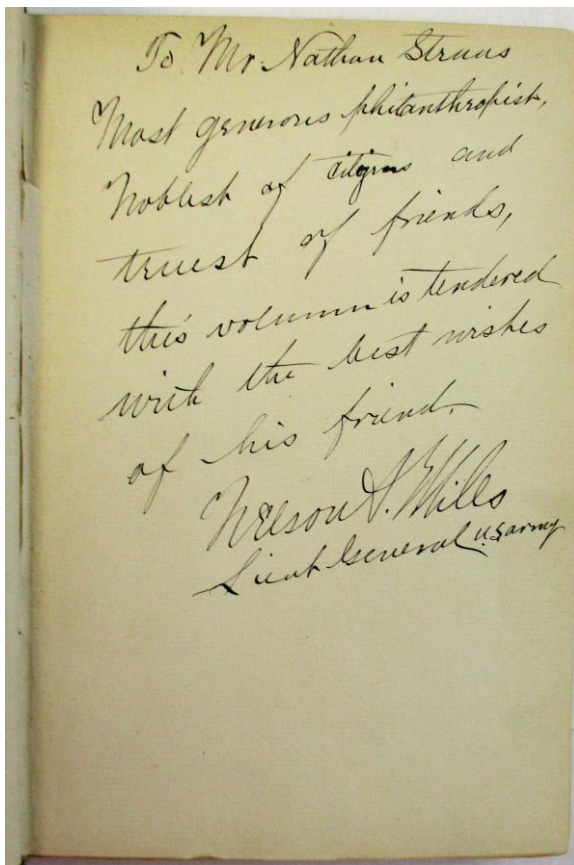 To Mr. Nathan Straus
Most generous philanthropist,
Noblest of citizens and
truest of friends,
this volumn is tendered
with the best wishes
of his friend.
Nelson A. Miles
Lieut General U.S. Army